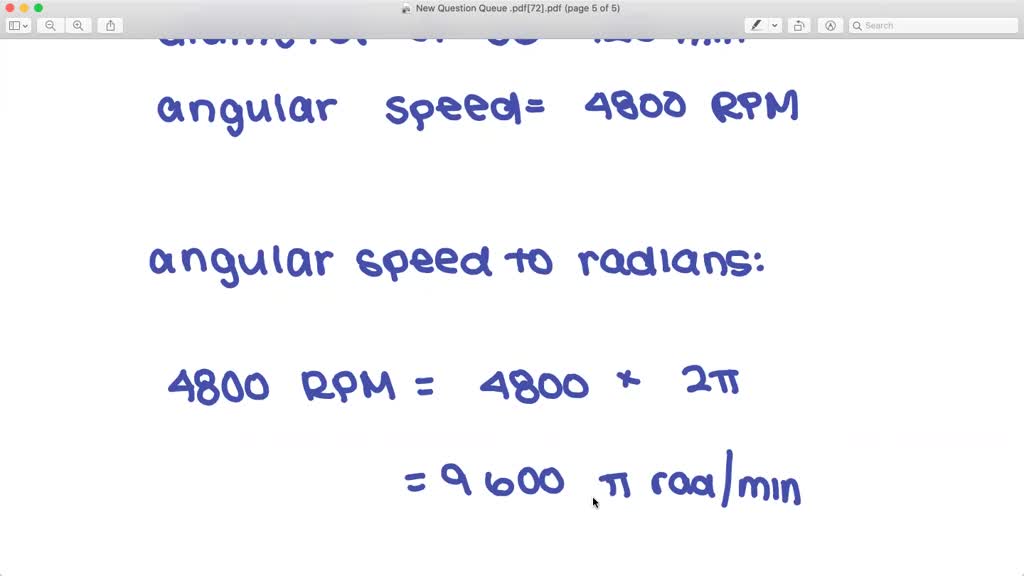 New Question Queue .pdf[72].pdf (page 5 of 5)
Search
angular speed= 4800 RPM
angular speed to radians:
4800 RPM = 4800 * 2π
= 9600 π rad/min